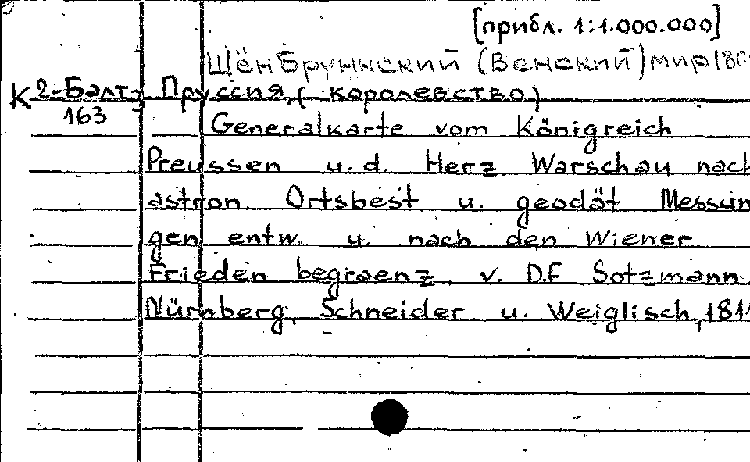 [прибл. 1:1.000.000]
Шёнбруннский (Венский) мир 180
К 2-Балт. Пруссия, (королевство)
163
Generalkarte vom Königreich
Preussen u. d. Herz Warschau nach
astron. Ortsbest u. geodät Messun
gen entw. u. nach den Wiener
Frieden begraenz. v. D.F Sotzmann.
Nürnberg, Schneider u. Weiglisch, 181